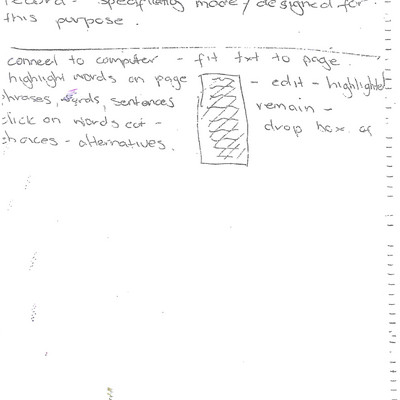 record - specifically made / designed for
this purpose.
connect to computer - fit txt to page.
highlight words on page - edit - highlighted
phrases, words, sentences remain -
click on words cut - drop box of
choices - alternatives.